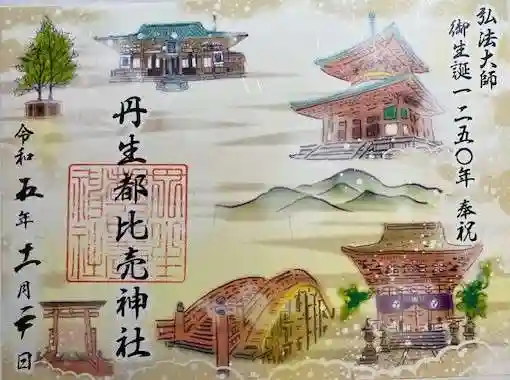 弘法大師
御生誕一二五〇年 奉祝
丹生都比売神社
令和五年十一月日